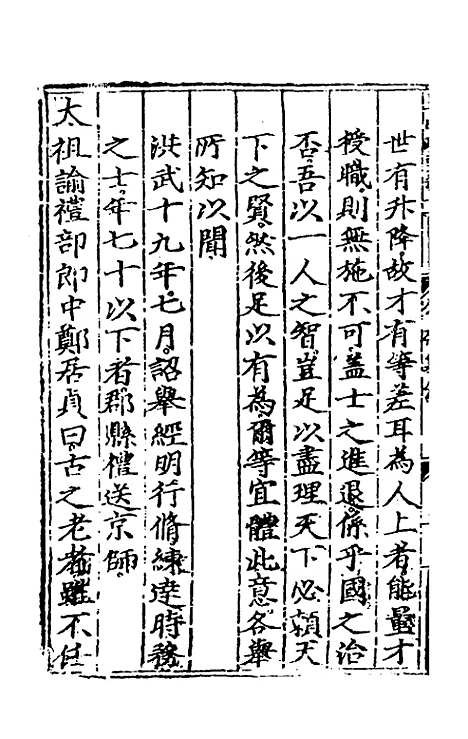 世有升降故才有等差耳為人上者能量才
授職則無施不可盖士之進退係乎國之治
否吾以一人之智豈足以盡理天下必頼天
下之賢然後足以有為爾等宜體此意各舉
所知以聞
洪武十九年七月詔舉經明行脩練達時務
之士年七十以下者郡縣禮送京師
太祖諭禮部郎中鄭居貞曰古之老者雖不任